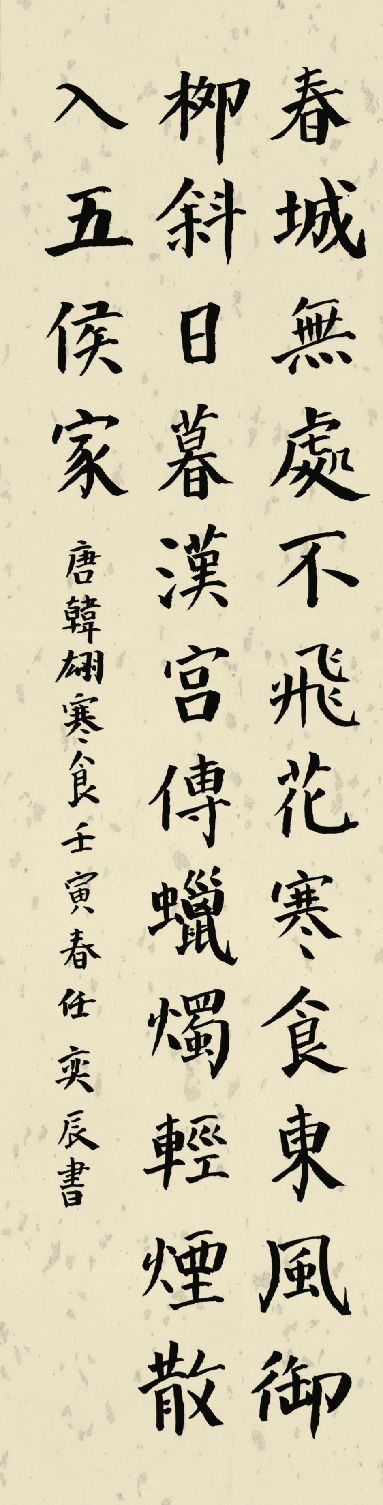 春城無處不飛花寒食東風御
柳斜日暮漢宮傳蠟燭輕煙散
入五侯家
唐韓翃寒食壬寅春任奕辰書